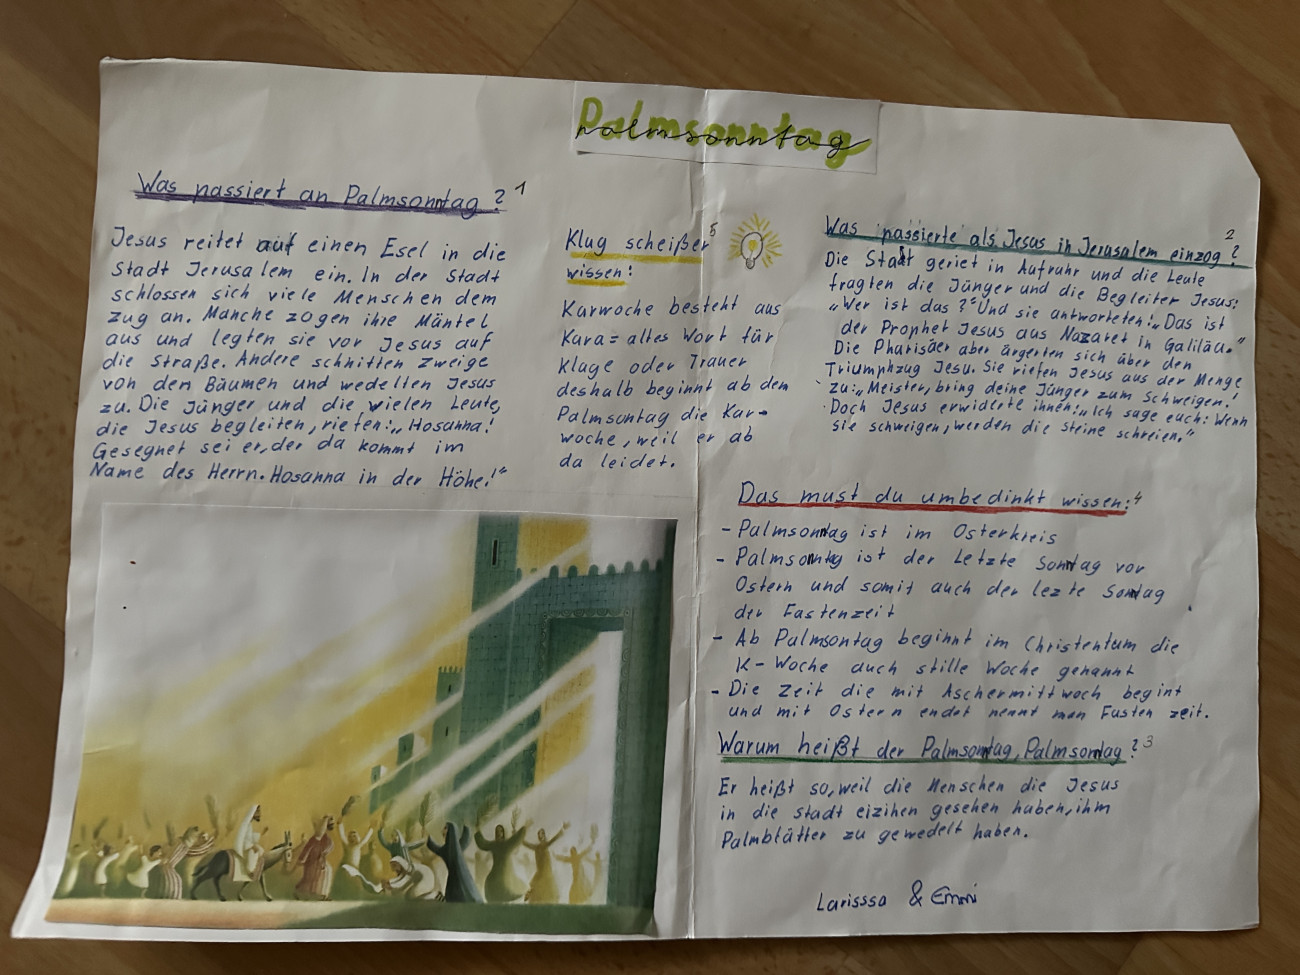 Palmsonntag
Palmsonntag
Was passiert an Palmsonntag? 1
Jesus reitet auf einen Esel in die
Stadt Jerusalem ein. In der Stadt
schlossen sich viele Menschen dem
Zug an. Manche zogen ihre Mäntel
aus und legten sie vor Jesus auf
die Straße. Andere schnitten Zweige
von den Bäumen und wedelten Jesus
zu. Die Jünger und die vielen Leute,
die Jesus begleiten, riefen: „Hosanna!
Gesegnet sei er, der da kommt im
Name des Herrn. Hosanna in der Höhe!“
Klug scheißer 5
wissen:
Karwoche besteht aus
Kara = altes Wort für
Klage oder Trauer
deshalb beginnt ab dem
Palmsontag die Kar-
woche, weil er ab
da leidet.
Was passierte als Jesus in Jerusalem einzog? 2
Die Stadt geriet in Aufruhr und die Leute
fragten die Jünger und die Begleiter Jesus:
„Wer ist das?“ Und sie antworteten: „Das ist
der Prophet Jesus aus Nazaret in Galiläa.“
Die Pharisäer aber ärgerten sich über den
Triumphzug Jesu. Sie riefen Jesus aus der Menge
zu: „Meister, bring deine Jünger zum Schweigen!
Doch Jesus erwiderte ihnen: „Ich sage euch: Wenn
sie schweigen, werden die Steine schreien.“
Das must du umbedinkt wissen: 4
- Palmsonntag ist im Osterkreis
- Palmsonntag ist der Letzte Sonntag vor
Ostern und somit auch der lezte Sonntag
der Fastenzeit
- Ab Palmsontag beginnt im Christentum die
K-Woche auch stille Woche genannt
- Die Zeit die mit Aschermittwoch begint
und mit Ostern endet nennt man Fasten zeit.
Warum heißt der Palmsonntag, Palmsonntag? 3
Er heißt so, weil die Menschen die Jesus
in die Stadt eizihen gesehen haben, ihm
Palmblätter zu gewedelt haben.
Larisssa & Emmi